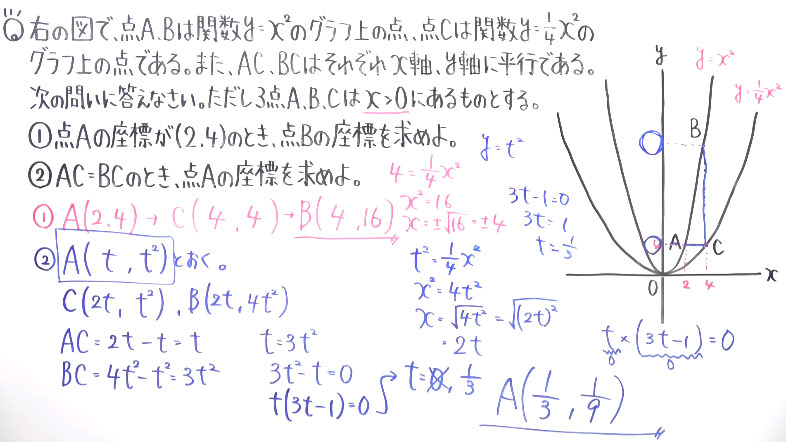 右の図で、点A、Bは関数y=x²のグラフ上の点、点Cは関数y=1/4x²の
グラフ上の点である。また、AC、BCはそれぞれx軸、y軸に平行である。
次の問いに答えなさい。ただし3点A、B、Cはx>0にあるものとする。
①点Aの座標が(2,4)のとき、点Bの座標を求めよ。
②AC=BCのとき、点Aの座標を求めよ。
①A(2,4)→C(4,4)→B(4,16)
4=1/4x²
x²=16
x=±√16=±4
②A(t,t²)とおく。
C(2t,t²)、B(2t,4t²)
AC=2t-t=t
BC=4t²-t²=3t²
t=3t²
3t²-t=0
t(3t-1)=0
t=0,1/3
A(1/3,1/9)
t²=1/4x²
x²=4t²
x=√4t²=√(2t)²
=2t
y=t²
3t-1=0
3t=1
t=1/3
t×(3t-1)=0
0 0
y
y=x²
y=1/4x²
B
A
C
O
2
4
x